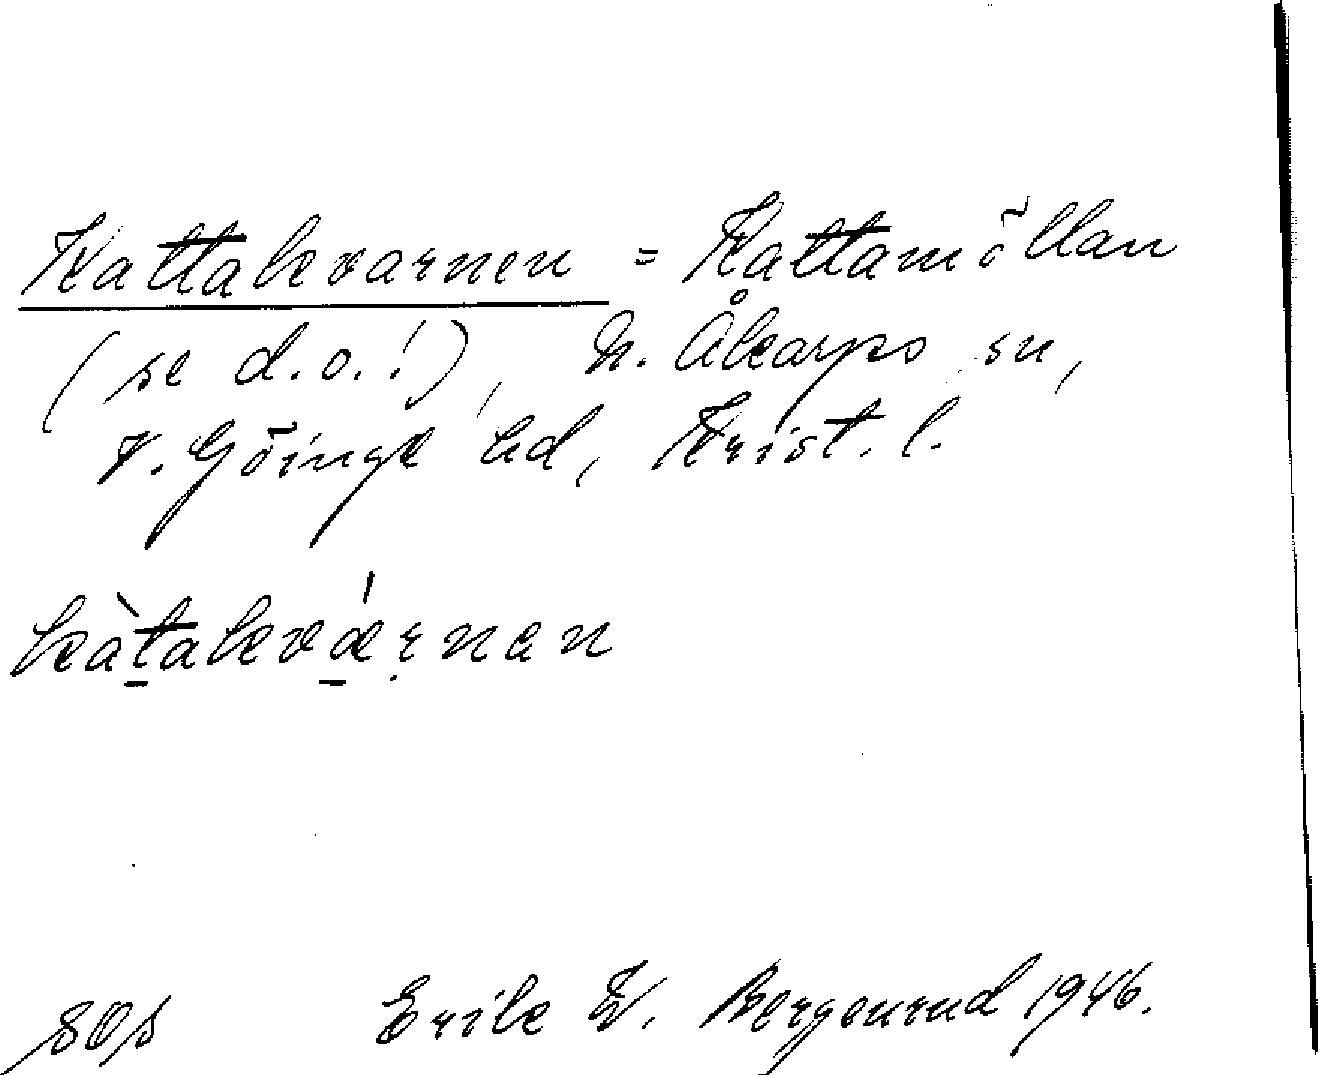 Kattakvarnen = Kattamöllan
(se d.o.!), N. Åkarps sn,
V. Göinge hd, Krist. l.
kàtakvǽrnan
Erik W. Bergenrud 1946.